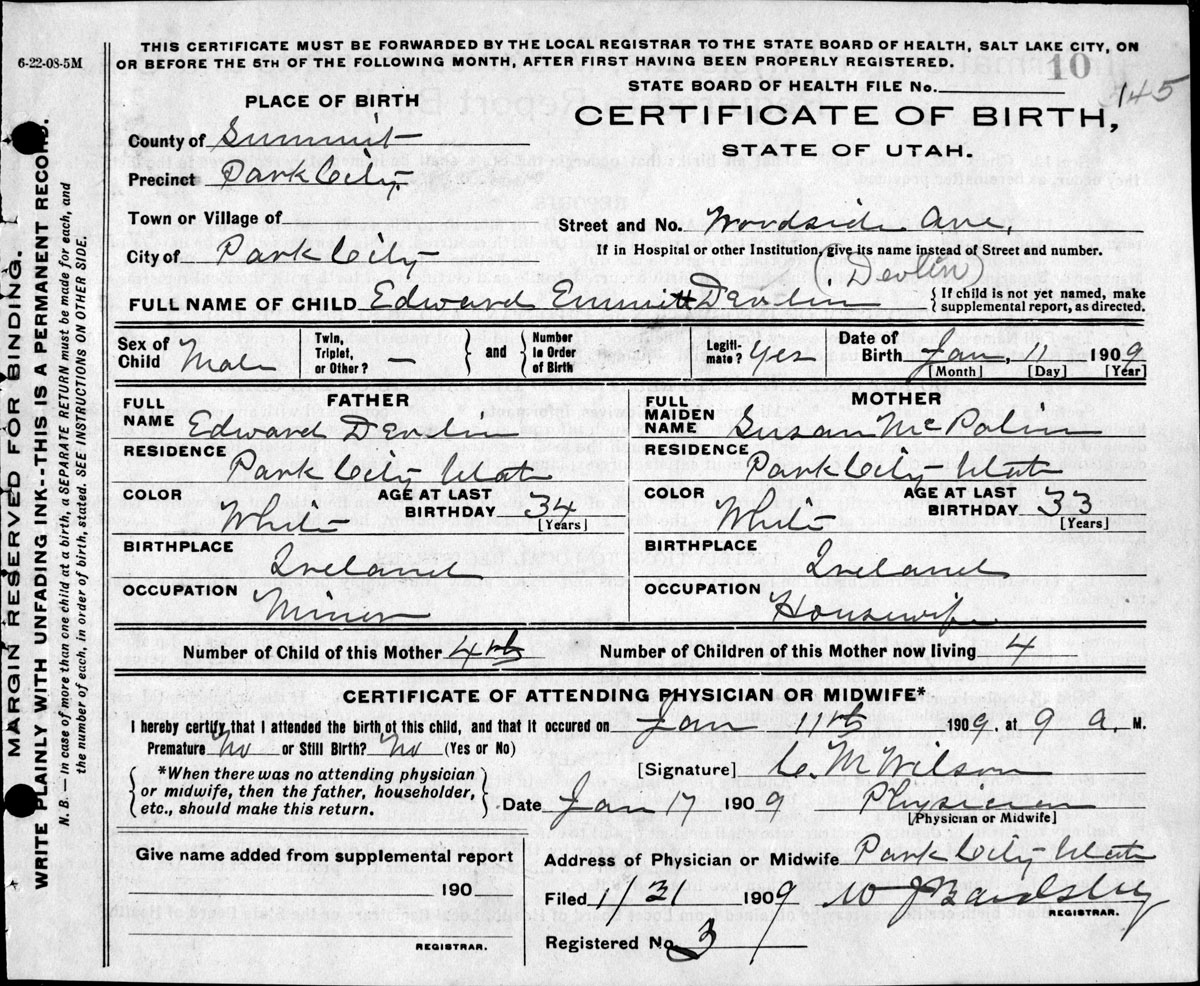 6-22-08-5M
THIS CERTIFICATE MUST BE FORWARDED BY THE LOCAL REGISTRAR TO THE STATE BOARD OF HEALTH, SALT LAKE CITY, ON
OR BEFORE THE 5TH OF THE FOLLOWING MONTH, AFTER FIRST HAVING BEEN PROPERLY REGISTERED.
10
STATE BOARD OF HEALTH FILE No. 145
PLACE OF BIRTH
CERTIFICATE OF BIRTH,
STATE OF UTAH.
County of Summit
Precinct Park City
Town or Village of
Street and No. Woodside Ave.
City of Park City
If in Hospital or other Institution give its name instead of Street and number.
(Devlin)
FULL NAME OF CHILD Edward Emmitt Devlin
{ If child is not yet named, make
supplemental report, as directed.
Sex of Child Male
Twin, Triplet, or Other? —
} and {
Number in Order of Birth
Legiti-mate? Yes
Date of Birth Jan. 11 1909
[Month] [Day] [Year]
FATHER
FULL NAME Edward Devlin
RESIDENCE Park City Utah
COLOR White
AGE AT LAST BIRTHDAY 34
[Years]
BIRTHPLACE Ireland
OCCUPATION Miner
MOTHER
FULL MAIDEN NAME Susan McPolin
RESIDENCE Park City Utah
COLOR White
AGE AT LAST BIRTHDAY 33
[Years]
BIRTHPLACE Ireland
OCCUPATION Housewife
Number of Child of this Mother 4th
Number of Children of this Mother now living 4
CERTIFICATE OF ATTENDING PHYSICIAN OR MIDWIFE*
I hereby certify that I attended the birth of this child, and that it occured on Jan 11th 1909, at 9 a. M.
Premature No or Still Birth? No (Yes or No)
{ *When there was no attending physician
or midwife, then the father, householder,
etc., should make this return. }
[Signature] C. M Wilson
Date Jan 17 1909 Physician
[Physician or Midwife]
Give name added from supplemental report
190
REGISTRAR.
Address of Physician or Midwife Park City Utah
Filed 1/31 1909 W J Bardsley
REGISTRAR.
Registered No. 3
MARGIN RESERVED FOR BINDING.
WRITE PLAINLY WITH UNFADING INK--THIS IS A PERMANENT RECORD.
N. B. — In case of more than one child at a birth, a SEPARATE RETURN must be made for each, and
the number of each, in order of birth, stated. SEE INSTRUCTIONS ON OTHER SIDE.